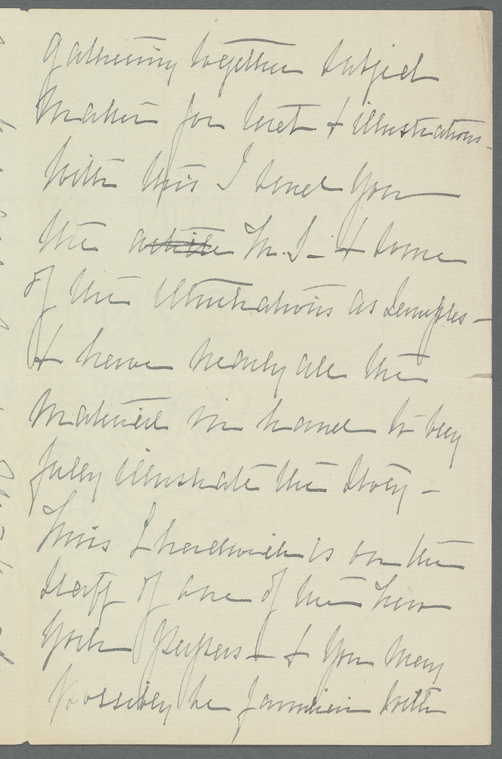 gathering together subject
matter for text & illustrations.
With this I send you
the article M.S. & some
of the illustrations as samples -
& have nearly all the
material in hand to very
fully illustrate the story -
Miss Chadwick is on the
staff of one of the New
York papers - & you may
possibly be familiar with